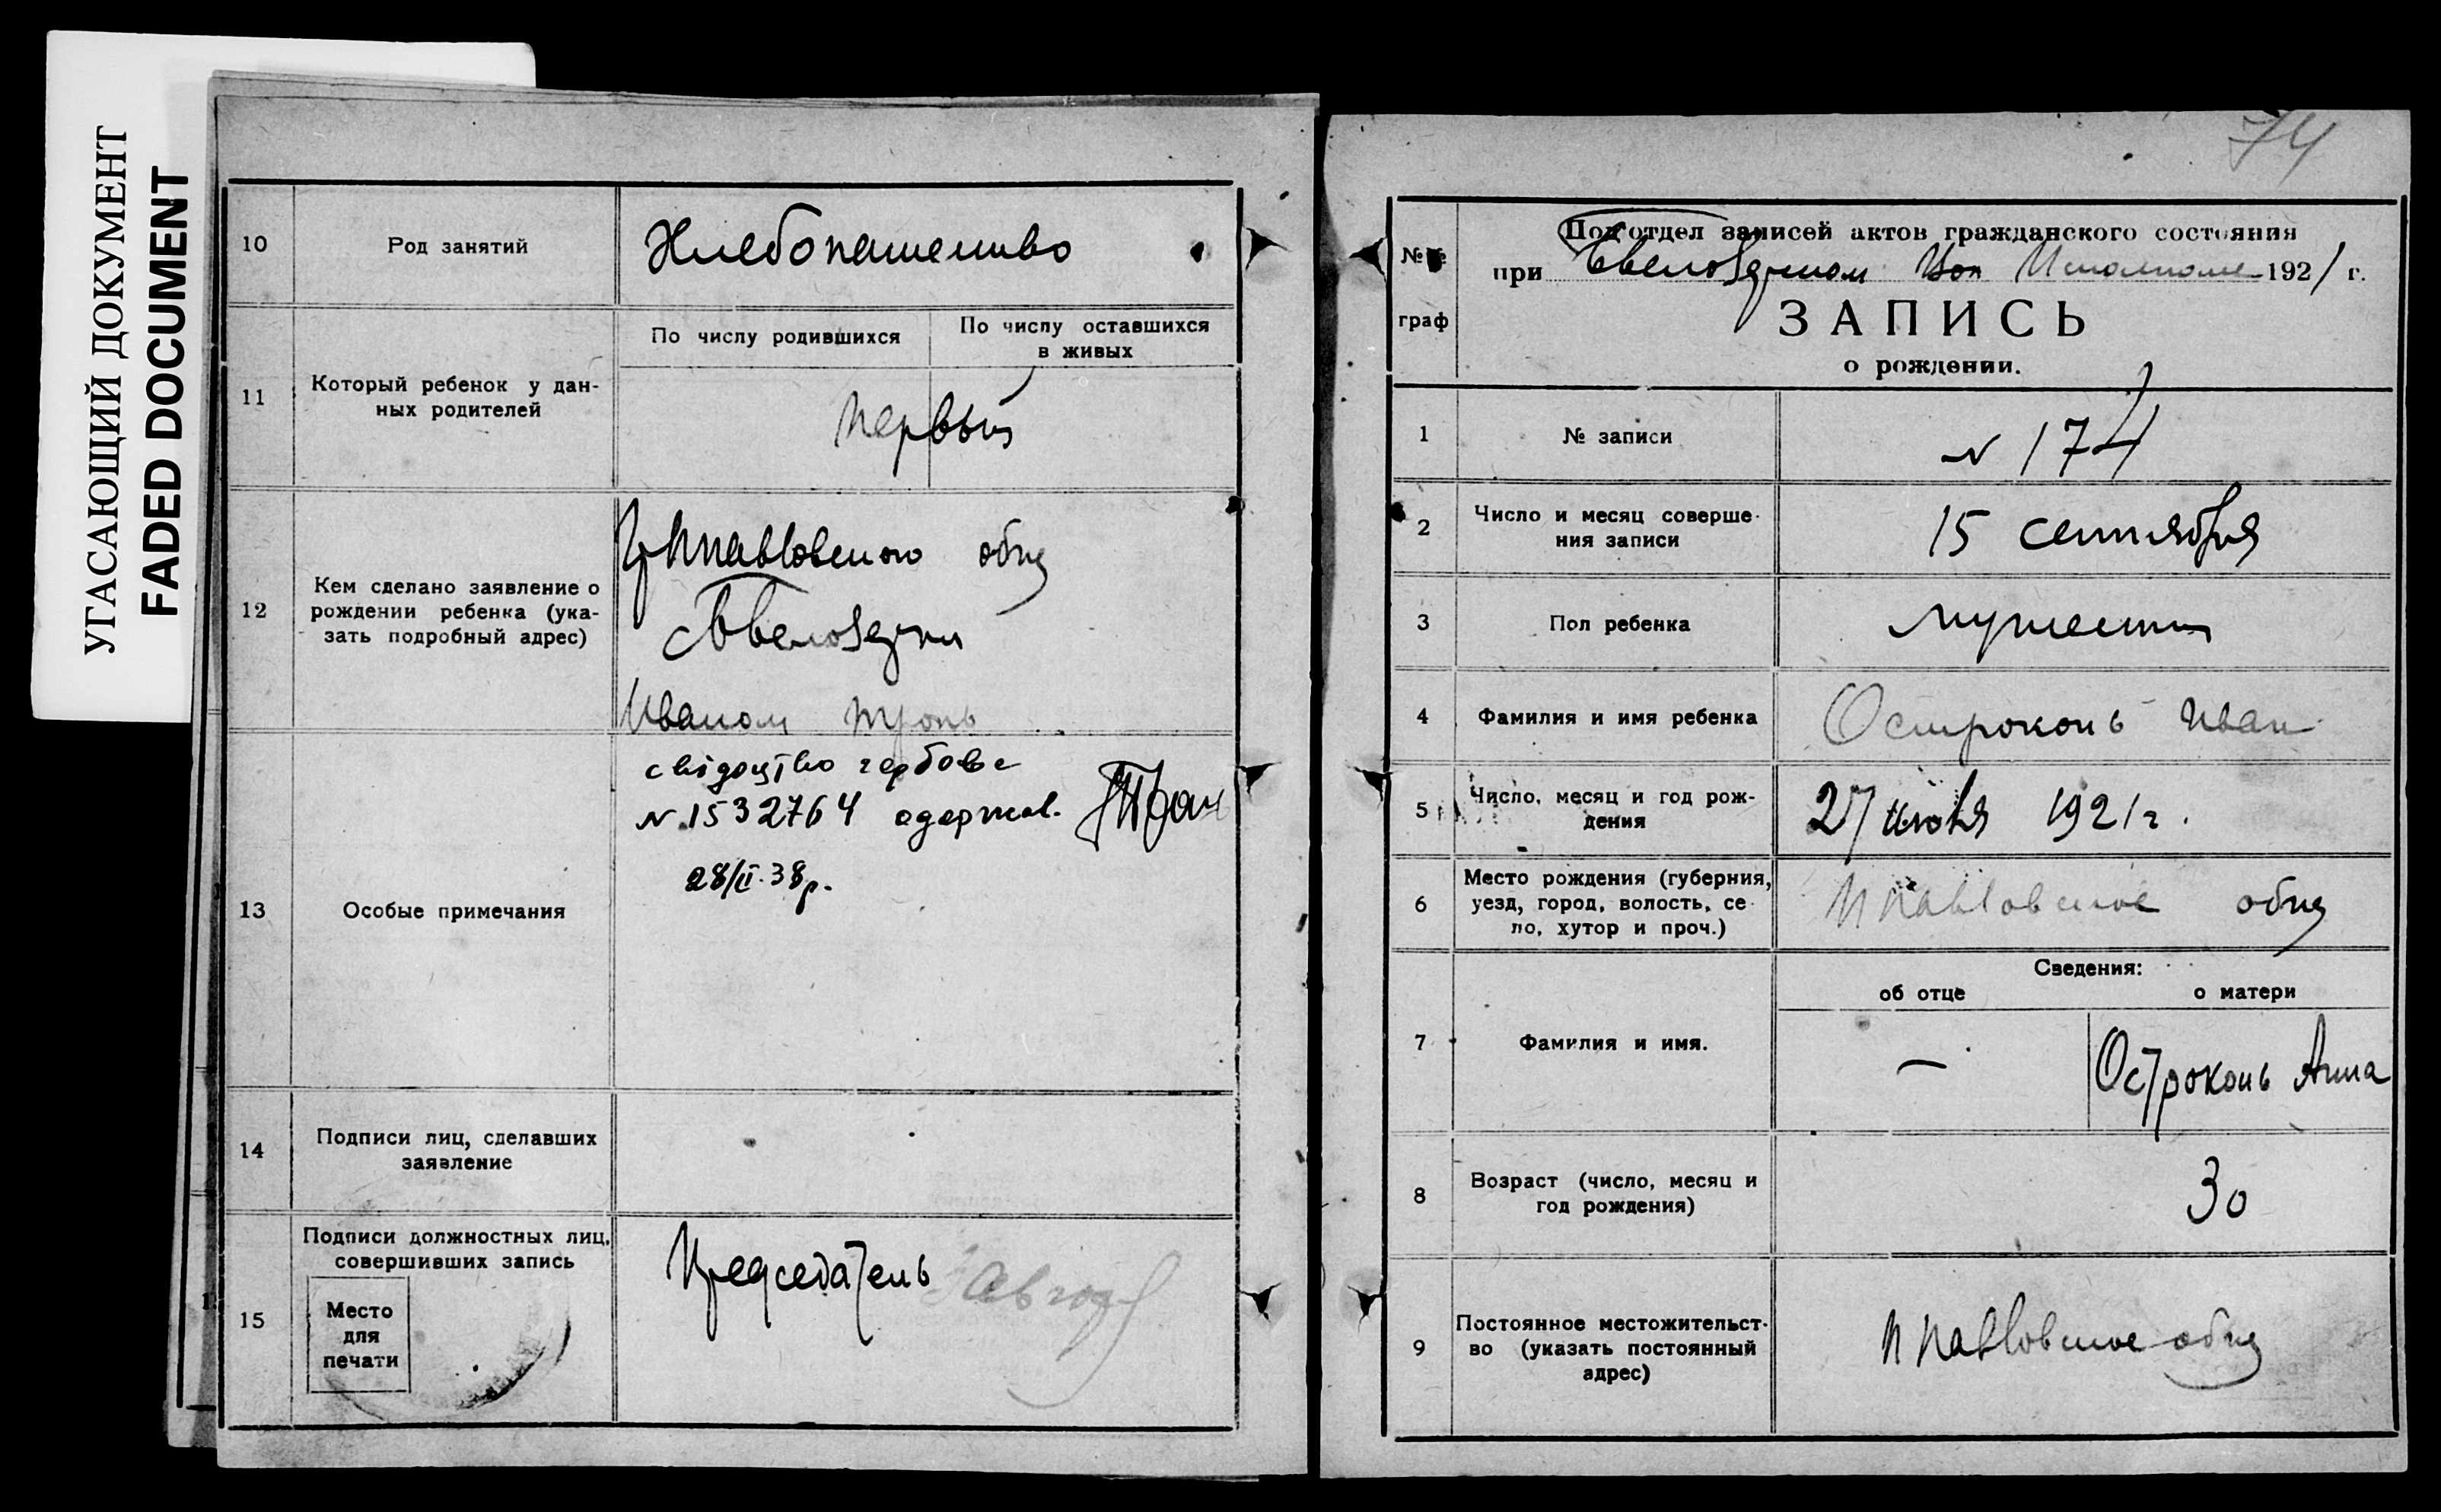 УГАСАЮЩИЙ ДОКУМЕНТ
FADED DOCUMENT
10 Род занятий Хлебопашество
11 Который ребенок у дан-
ных родителей
По числу родившихся
По числу оставшихся
в живых
Первый
12 Кем сделано заявление о
рождении ребенка (ука-
зать подробный адрес)
Гр Ппавловского общ
Иваном
13 Особые примечания
свідоцтво гербове
N 1532764 одержав.
28/II.38р.
14 Подписи лиц, сделавших
заявление
15 Подписи должностных лиц,
совершивших запись
Место
для
печати
Председатель
74
№№
граф
Подотдел записей актов гражданского состояния
при Исполкоме 1921 г.
ЗАПИСЬ
о рождении.
1 № записи N 174
2 Число и месяц соверше-
ния записи
15 сентября
3 Пол ребенка мужеский
4 Фамилия и имя ребенка Остроконь Иван
5 Число, месяц и год рож-
дения
27 1921г.
6 Место рождения (губерния,
уезд, город, волость, се-
ло, хутор и проч.)
Ппавловское общ
Сведения:
об отце о матери
7 Фамилия и имя. — Остроконь Анна
8 Возраст (число, месяц и
год рождения)
30
9 Постоянное местожительст-
во (указать постоянный
адрес)
Ппавловское общ